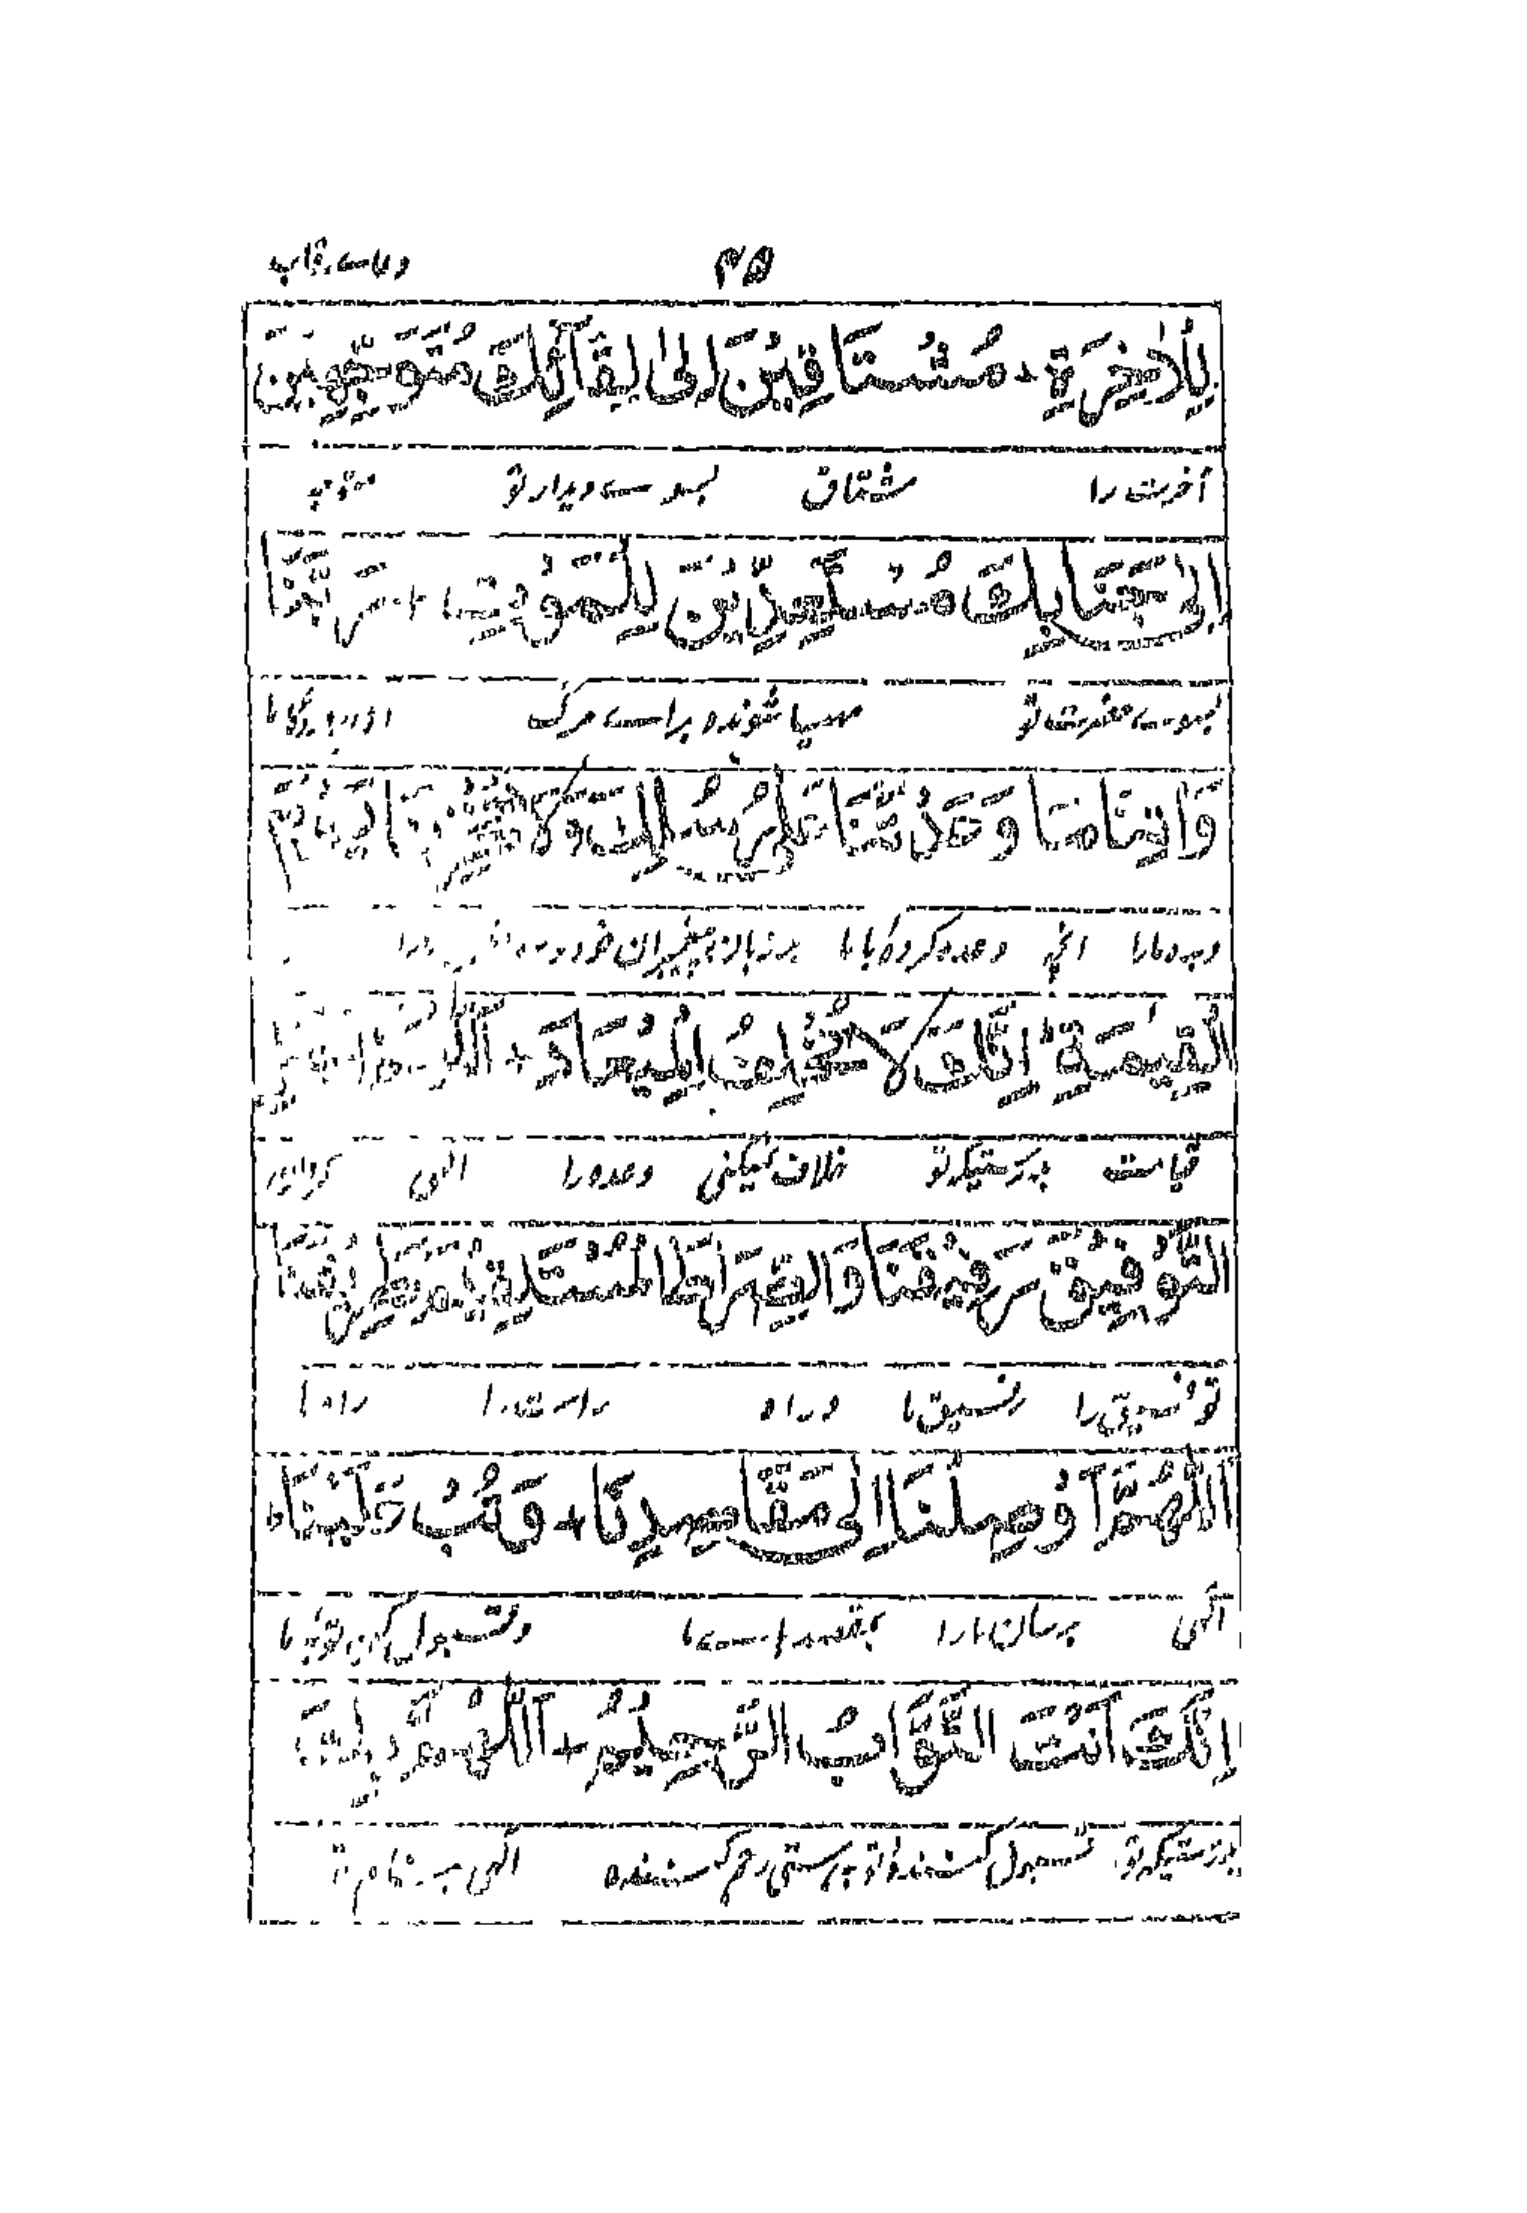 ۴۵ دعاے رقاب
لِلْاٰخِرَةِ + مُشْتَاقِيْنَ اِلٰى لِقَآئِكَ مُتَوَجِّهِيْنَ
آخرت را مشتاق بسوے دیدار تو متوجہ
اِلٰى جَنَابِكَ مُسْتَعِدِّيْنَ لِلْمَوْتِ + رَبَّنَا
بسوے حضرت تو مہیا شوندہ براے مرگ
وَاٰتِنَا مَا وَعَدْتَّنَا عَلٰى رُسُلِكَ وَلَا تُخْزِنَا يَوْمَ
وبدہ مارا آنچہ وعدہ کردہ باما بر زبان پیغمبران خود
الْقِيٰمَةِ اِنَّكَ لَا تُخْلِفُ الْمِيْعَادَ + اَللّٰهُمَّ
قیامت بدرستیکہ تو خلاف نمیکنی وعدہ را الہی
التَّوْفِيْقَ رَفِيْقَنَا وَالصِّرَاطَ الْمُسْتَقِيْمَ طَرِيْقَنَا
توفیق را رفیق ما و راہ راست را راہ ما
اَللّٰهُمَّ اَوْصِلْنَا اِلٰى مَقَاصِدِنَا + وَتُبْ عَلَيْنَا
الہی برسان مارا بمقصد ہاے ما وقبول کن توبۂ ما
اِنَّكَ اَنْتَ التَّوَّابُ الرَّحِيْمُ + اَللّٰهُمَّ
بدرستیکہ تو قبول کنندہ توبہ ہستی رحم کنندہ الہی